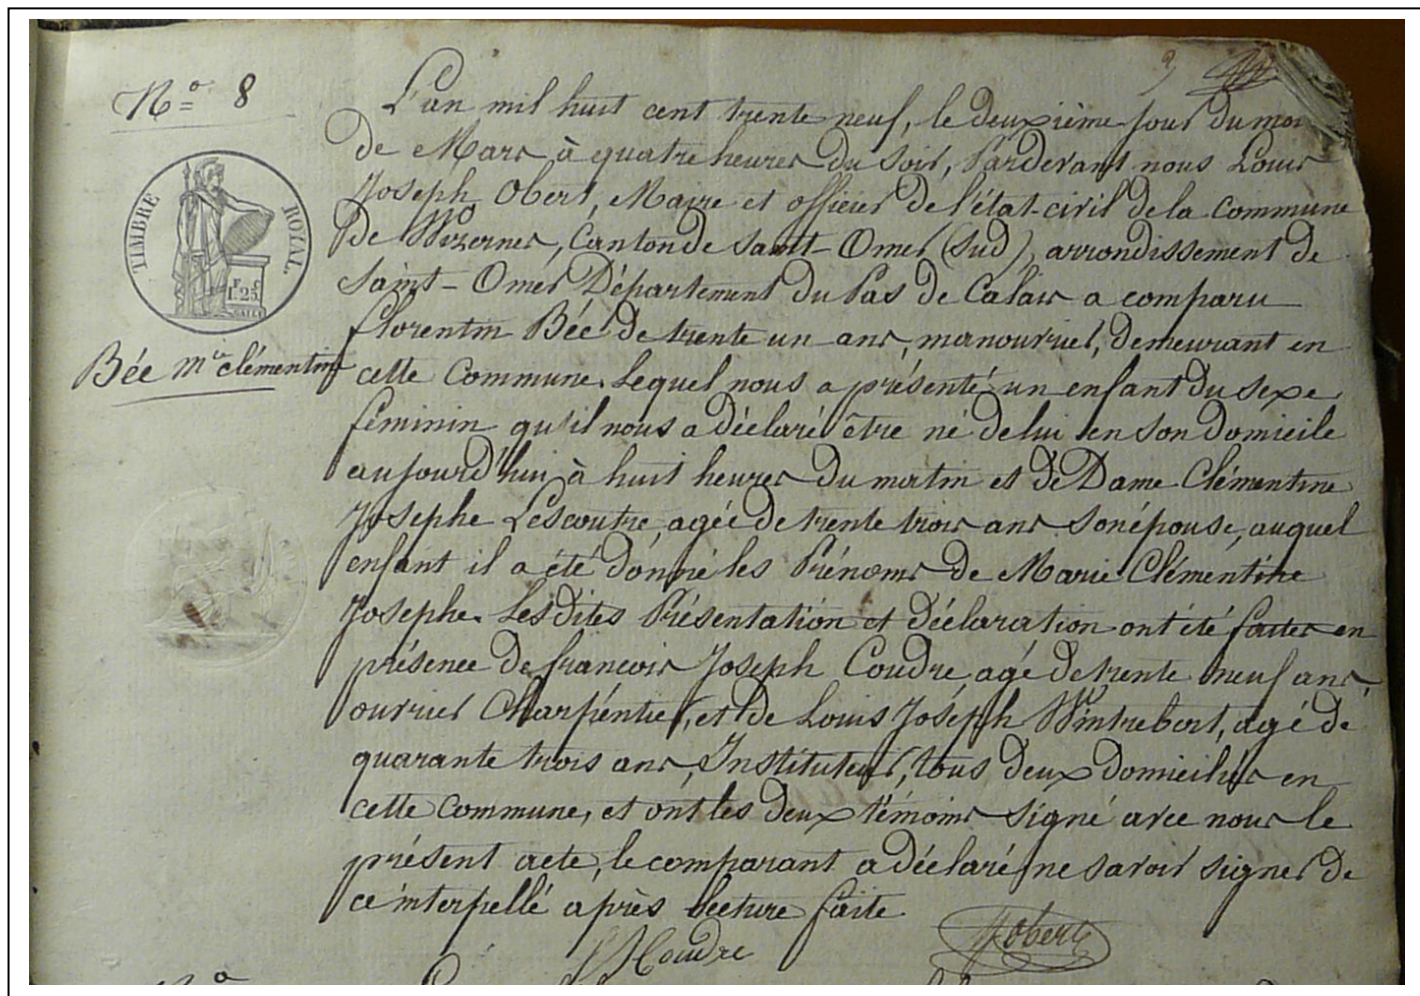 N° 8
TIMBRE ROYAL.
1 F. 25 C.
Bée Mie clémentine
L'an mil huit cent trente neuf, le deuxième jour du mois
de Mars à quatre heures du soir, Pardevant nous Louis
Joseph Obert, Maire et officier de l'état-civil de la commune
de Wizernes, Canton de Saint-Omer (Sud), arrondissement de
Saint-Omer Département du Pas de Calais a comparu
florentin Bée de trente un ans, manouvrier, demeurant en
cette Commune. Lequel nous a présenté un enfant du sexe
féminin qu'il nous a déclaré être né de lui en son domicile
aujourd'hui à huit heures du matin et de Dame Clémentine
Josephe Lescoutre, agée de trente trois ans son épouse, auquel
enfant il a été donné les Prénoms de Marie Clémentine
Josephe. Les dites Présentation et déclaration ont été faites en
présence de francois Joseph Coudre agé de trente neuf ans,
ouvrier Charpéntier, et de Louis Joséph Wintrebert, agé de
quarante trois ans, Instituteur, tous deux domiciliés en
cette commune, et ont les deux témoins signé avec nous le
présent acte, le comparant a déclaré ne savoir signer de
ce interpellé après lecture faite
Coudre
Obert
N°